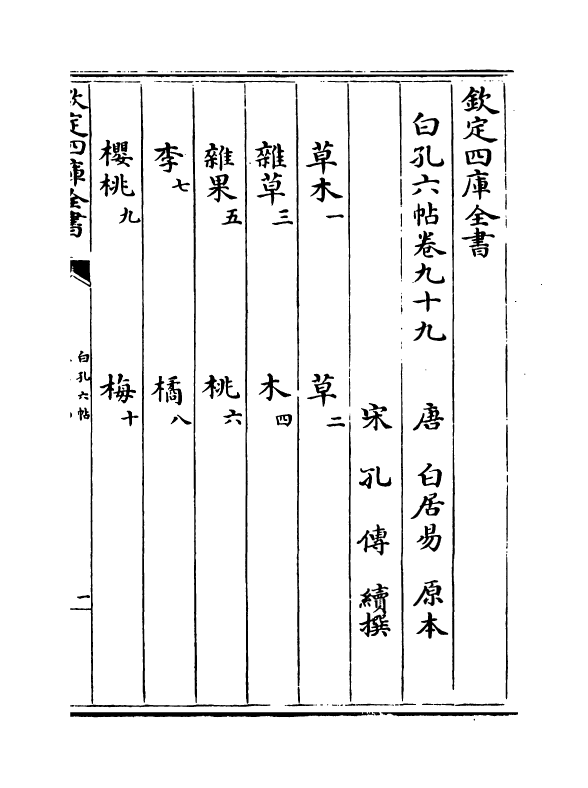 欽定四庫全書
白孔六帖卷九十九 唐 白居易 原本
宋 孔 傳 續撰
草木一 草二
雜草三 木四
雜果五 桃六
李七 橘八
櫻桃九 梅十
欽定四庫全書 白孔六帖 一